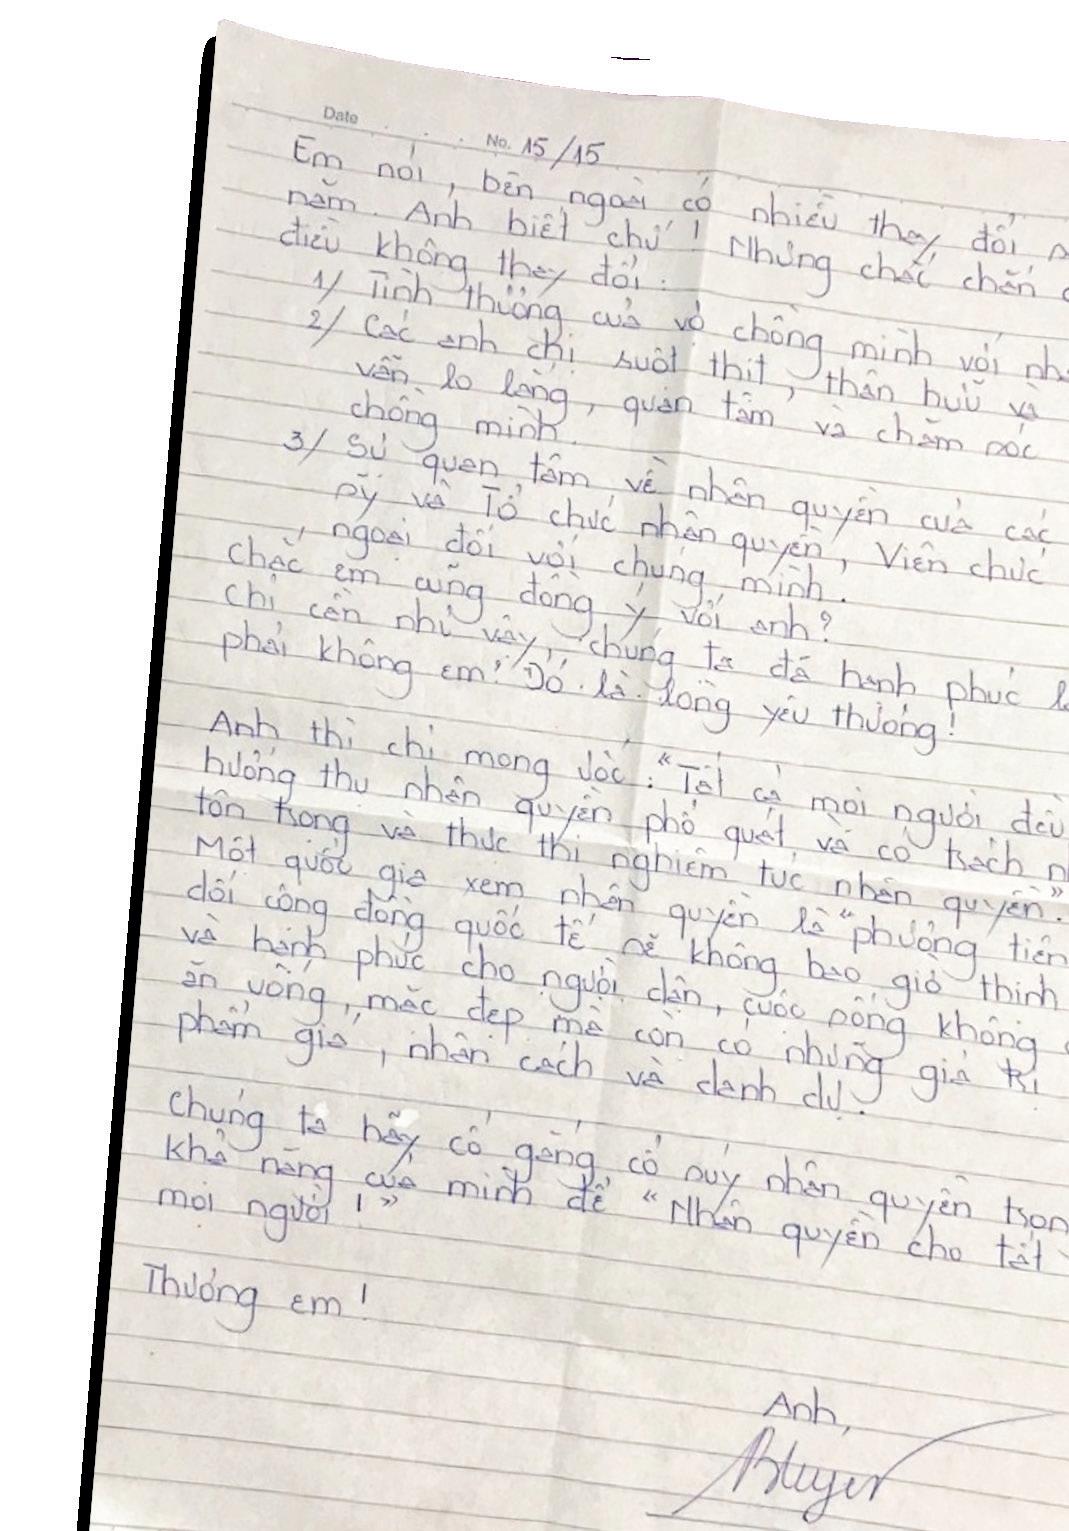 Date No. 15/15
Em nói, bên ngoài có nhiều thay đổi
năm. Anh biết chứ! Nhưng chắc chắn
điều không thay đổi.
1/ Tình thương của vợ chồng mình với
2/ Các anh chị suột thịt, thân hữu và
vẫn lo lắng, quan tâm và chăm sóc
chồng mình.
3/ Sự quan tâm về nhân quyền của các
sỹ và Tổ chức nhân quyền, Viên chức
ngoại đối với chúng mình.
Chắc em cũng đồng ý với anh?
Chỉ cần như vậy, chúng ta đã hạnh phúc
phải không em? Đó là lòng yêu thương!
Anh thì chỉ mong ước: "Tất cả mọi người đều
hưởng thụ nhân quyền phổ quát và có trách
tôn trọng và thực thi nghiêm túc nhân quyền".
Một quốc gia xem nhân quyền là "phương tiện
dối cộng đồng quốc tế sẽ không bao giờ thịnh
và hạnh phúc cho người dân, cuộc sống không
ăn uống, mặc đẹp mà còn có những giá trị
phẩm giá, nhân cách và danh dự.
Chúng ta hãy cố gắng cổ suý nhân quyền
khả năng của mình để "Nhân quyền cho tất
mọi người!"
Thương em!
Anh,